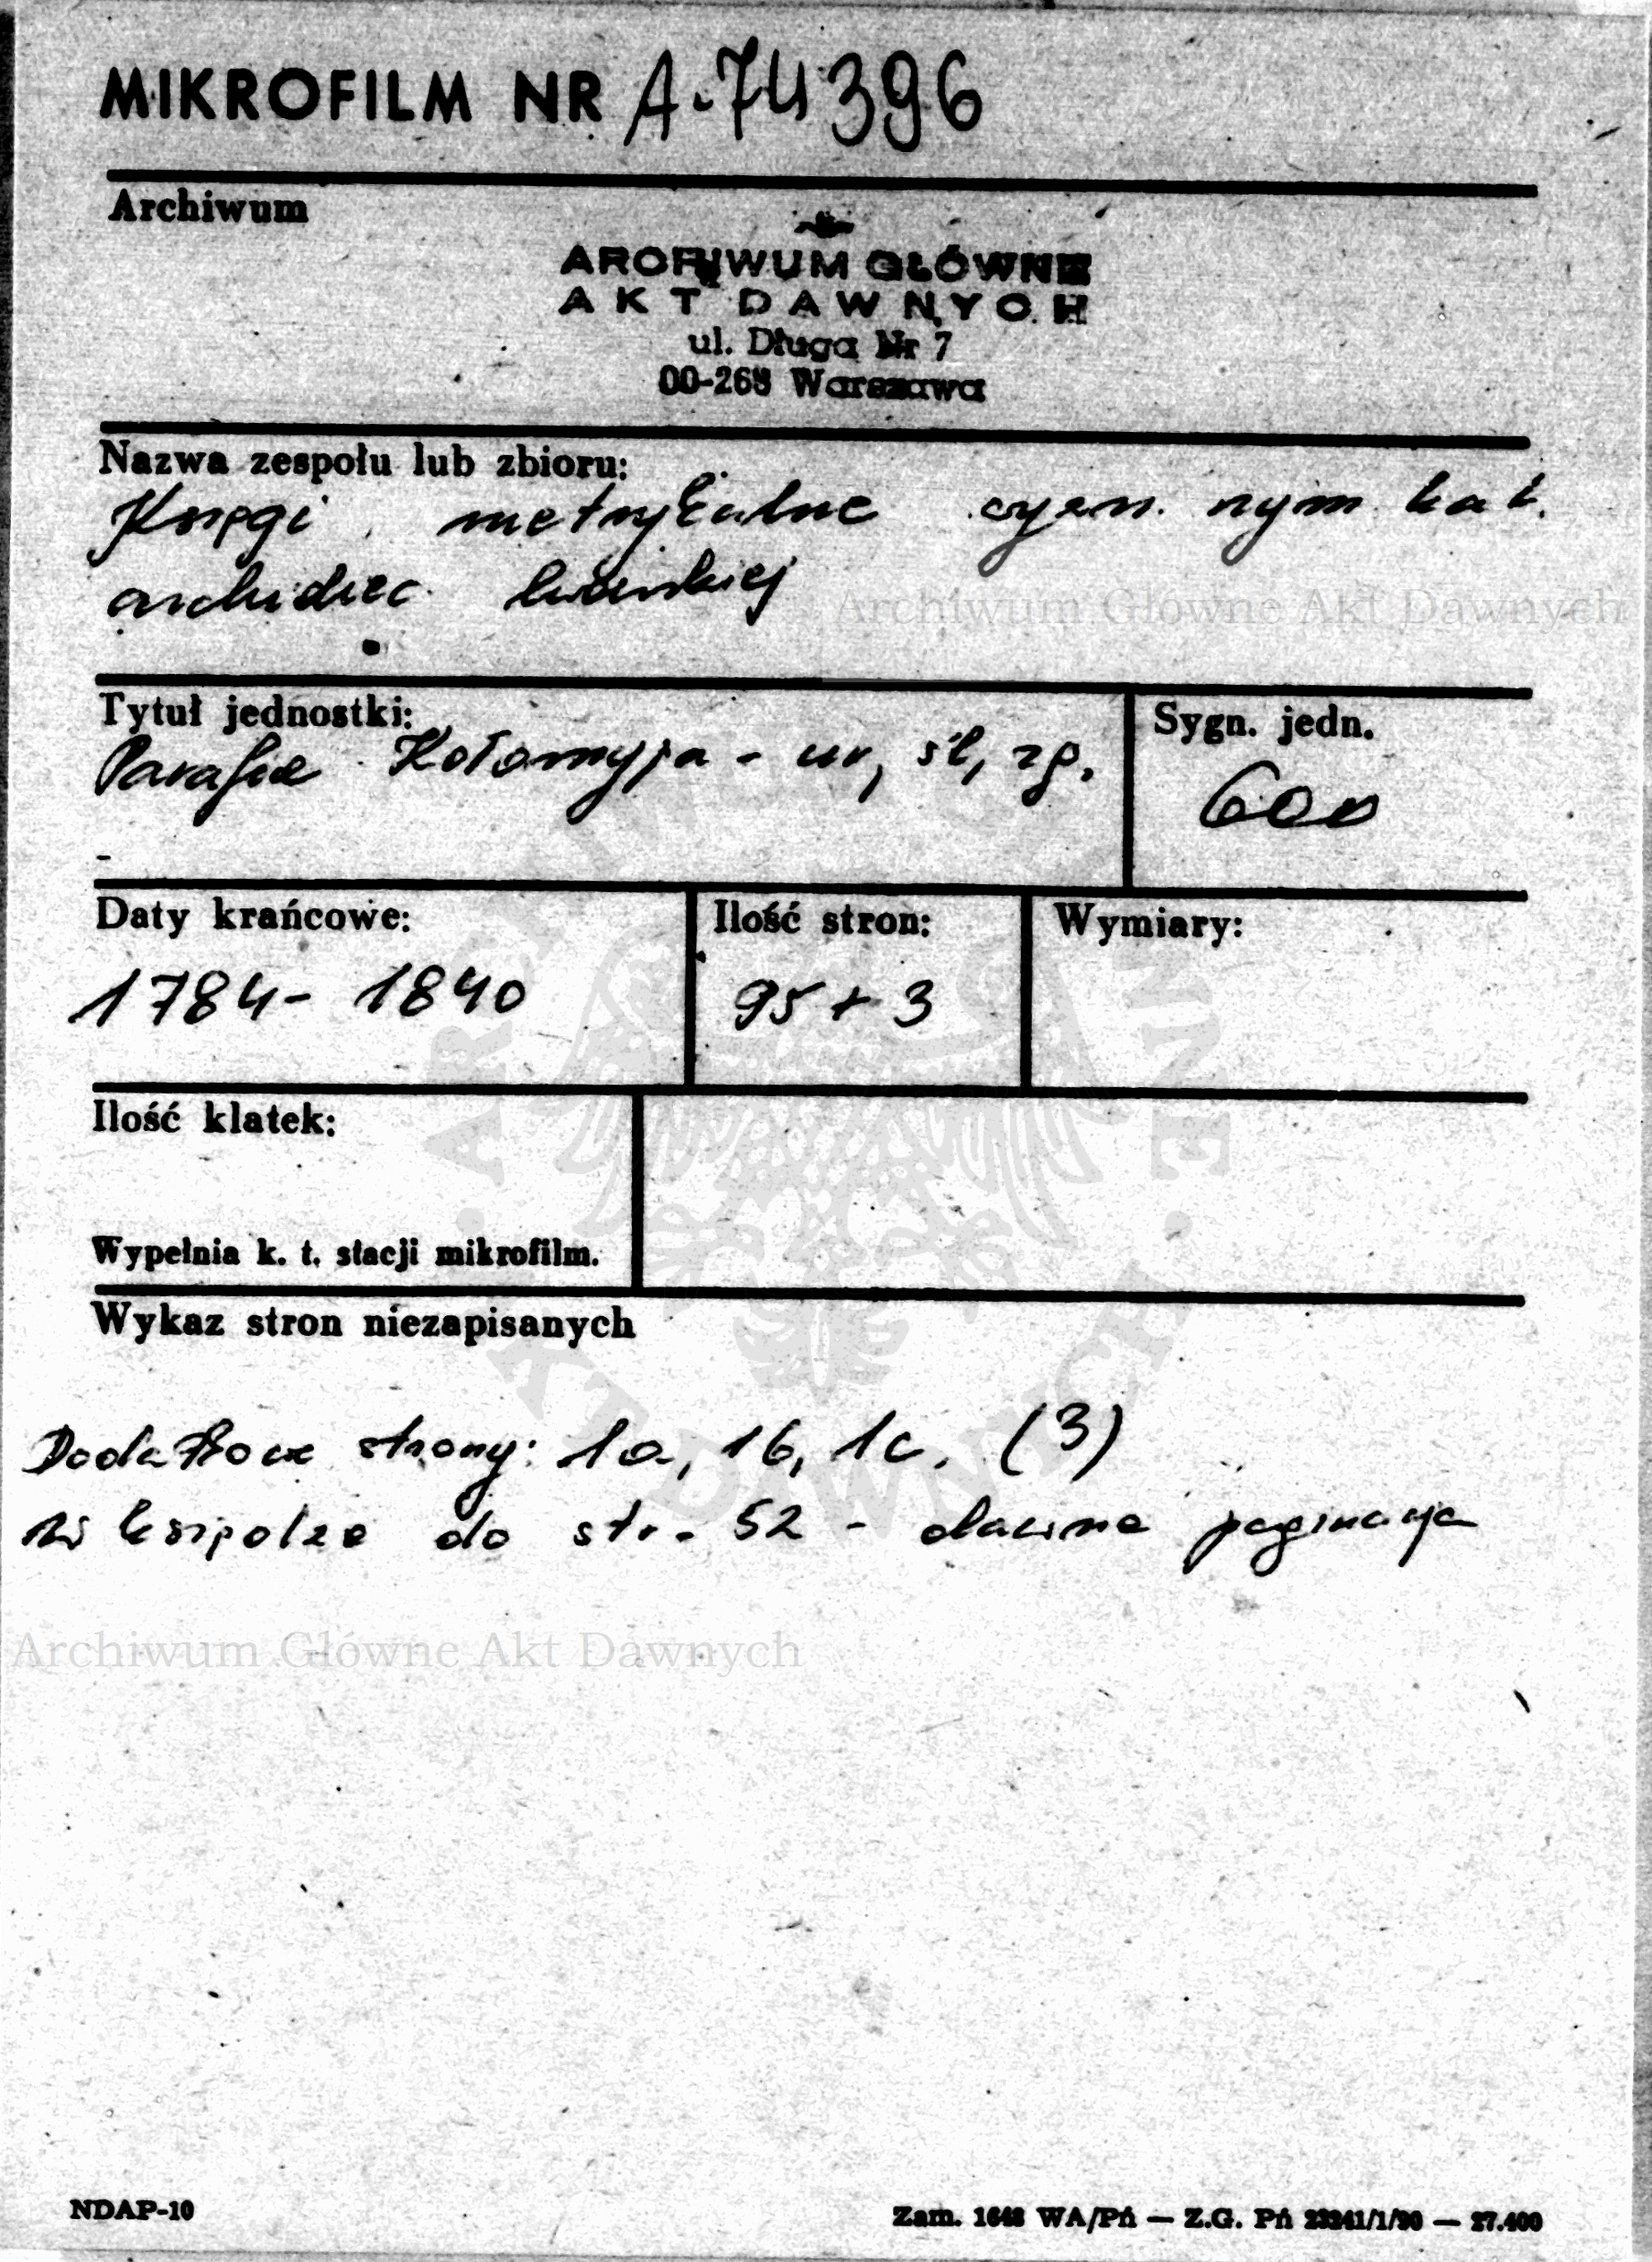 MIKROFILM NR A-74396
Archiwum
ARCHIWUM GŁÓWNE
AKT DAWNYCH
ul. Długa Nr 7
00-263 Warszawa
Nazwa zespołu lub zbioru:
Księgi metrykalne rzym. kat.
archidiec. lwowskiej
Archiwum Główne Akt Dawnych
Tytuł jednostki:
Parafia Kołomyja - ur, śl, zg.
Sygn. jedn.
600
Daty krańcowe:
1784- 1840
Ilość stron:
95 + 3
Wymiary:
Ilość klatek:
Wypełnia k. t. stacji mikrofilm.
Wykaz stron niezapisanych
Dodatkowe strony: 1a, 1b, 1c. (3)
W do str. 52 - dawna paginacja
Archiwum Główne Akt Dawnych
NDAP-10
Zam. 1648 WA/Pń — Z.G. Pń 23241/1/90 — 27.400